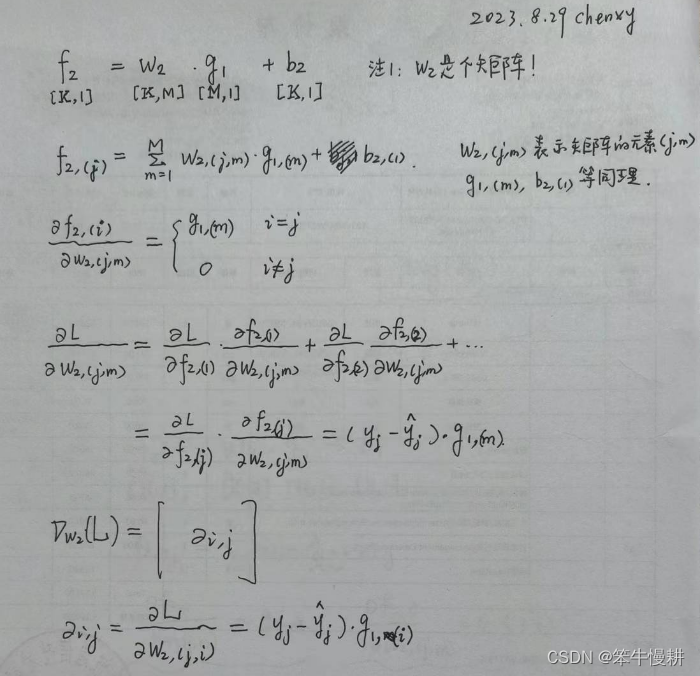 2023.8.29 chenxy
f₂ = W₂ · g₁ + b₂ 注1: W₂是个矩阵!
[K,1] [K,M] [M,1] [K,1]
f₂,(j) = Σ_{m=1}^{M} W₂,(j,m) · g₁,(m) + b₂,(1). W₂,(j,m) 表示矩阵的元素(j,m)
g₁,(m), b₂,(1) 等同理.
∂f₂,(i) / ∂W₂,(j,m) = { g₁,(m) i=j
0 i≠j
∂L / ∂W₂,(j,m) = ∂L / ∂f₂,(1) · ∂f₂,(1) / ∂W₂,(j,m) + ∂L / ∂f₂,(2) ∂f₂,(2) / ∂W₂,(j,m) + ...
= ∂L / ∂f₂,(j) · ∂f₂,(j) / ∂W₂,(j,m) = (y_j - ŷ_j) · g₁,(m).
∇_{W₂}(L) = [ ∂i,j ]
∂i,j = ∂L / ∂W₂,(j,i) = (y_j - ŷ_j) · g₁,(i)
CSDN @笨牛慢耕